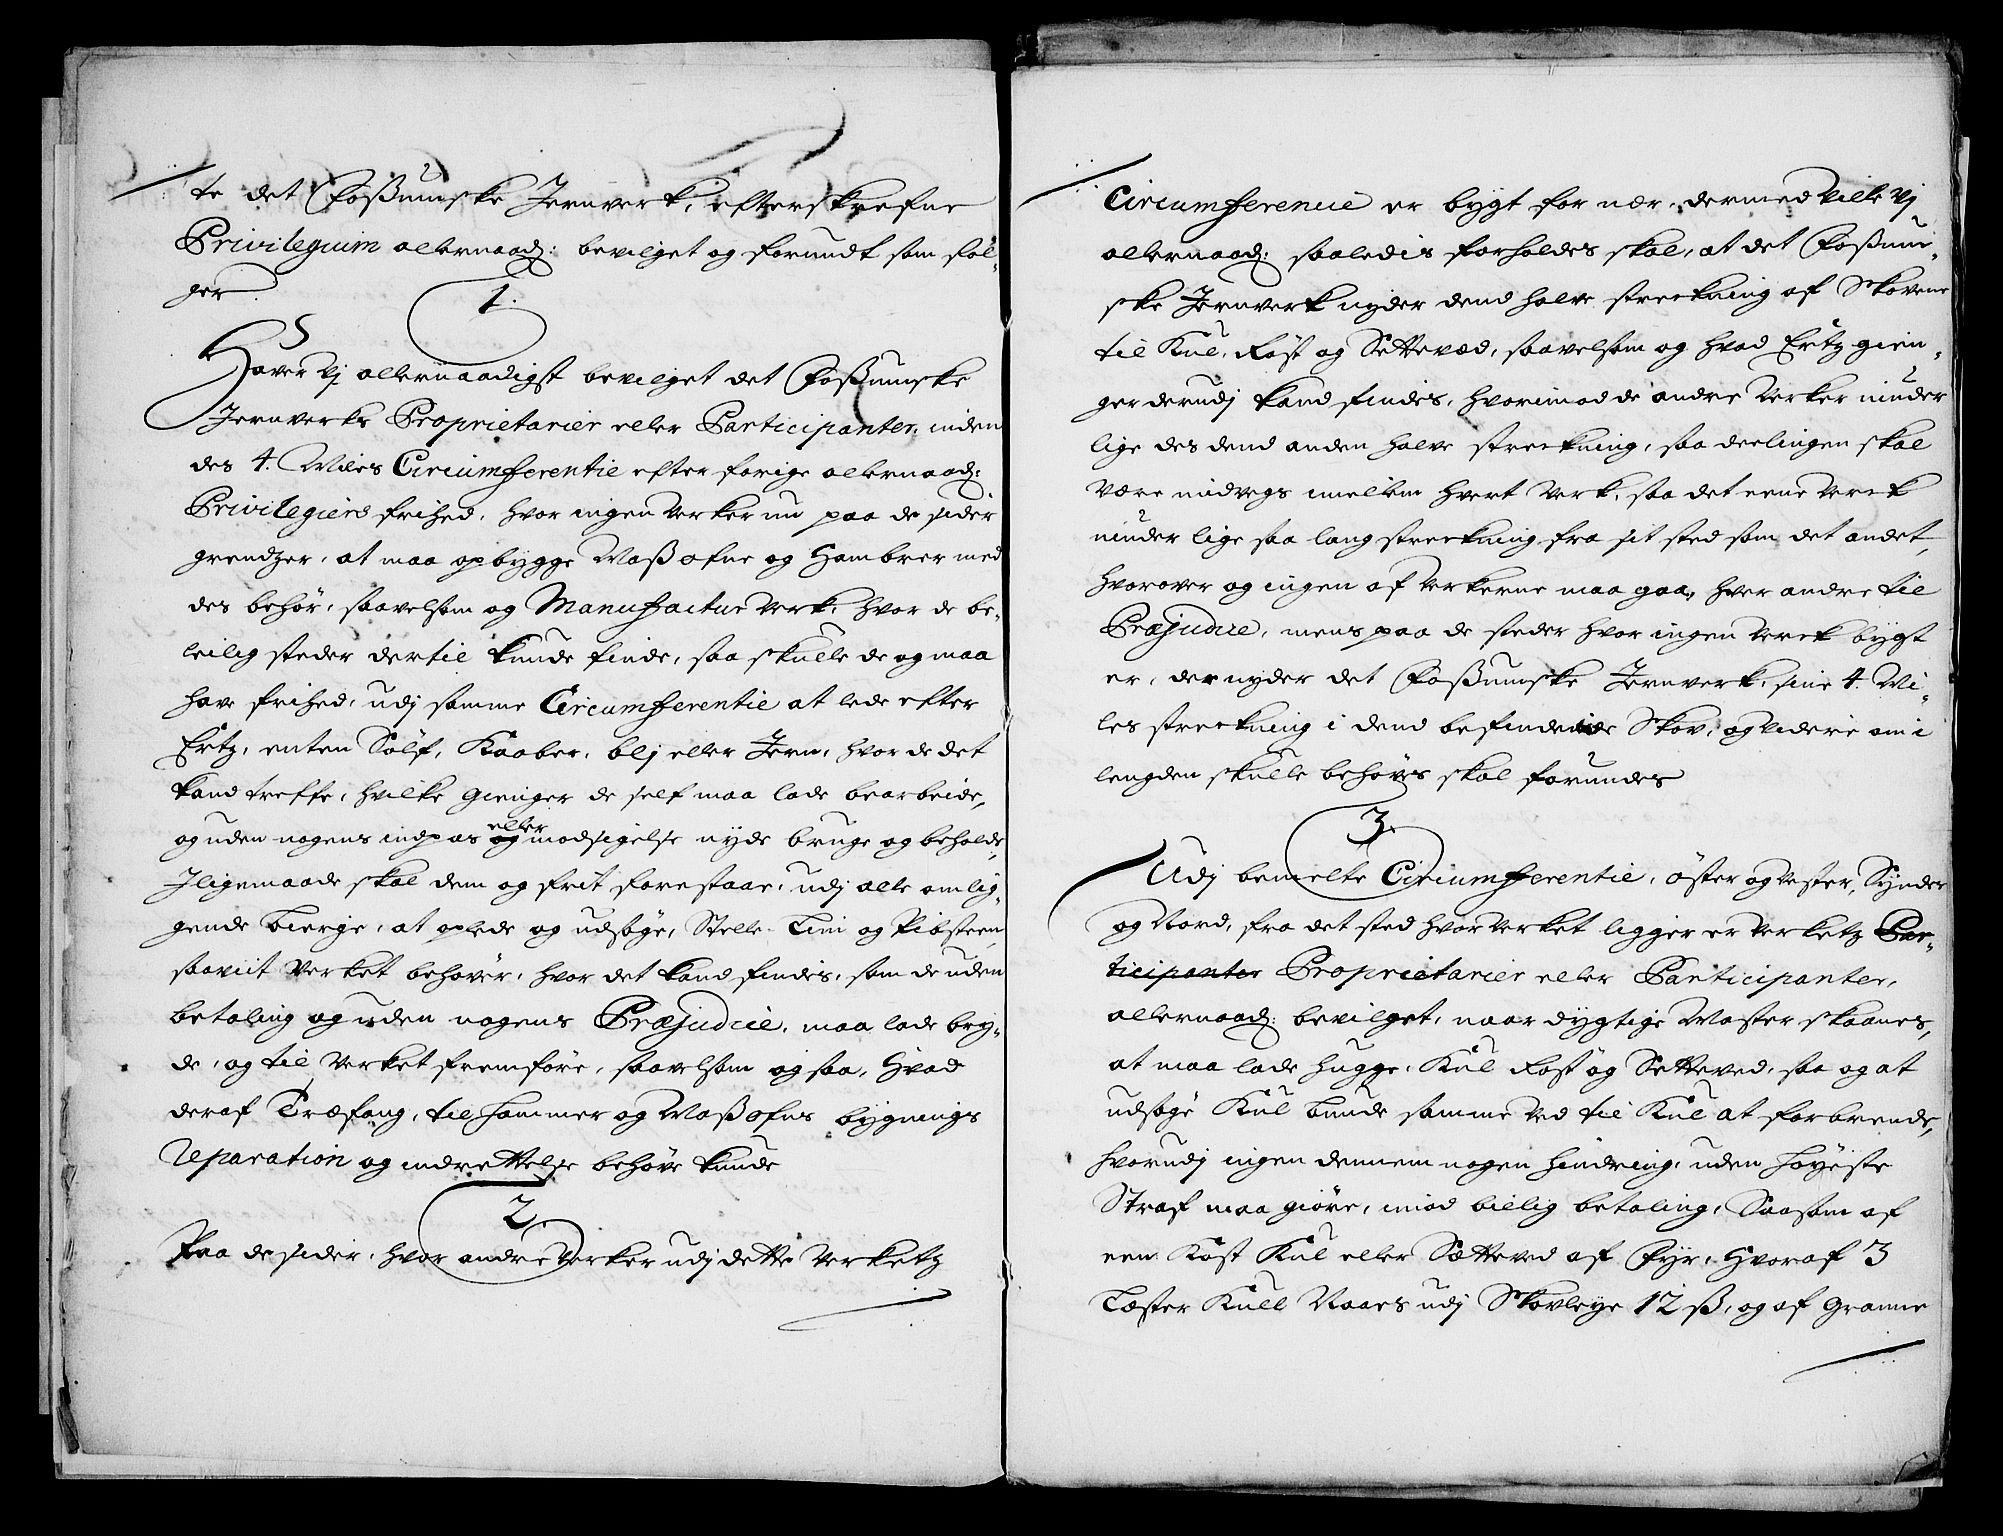 te det Fossumske Jernverk, efterskrefne
Privilegium allernaad: bevilget og forundt som føl-
ger.
1.
Hafver Vj allernaadigst bevilget det Fossumske
Jernverks Proprietarier eller Participanter, inden
des 4. Miles Circumfferentie efter forige allernaad:
Privilegiers frihed, hvor ingen Verker nu paa de sider
grendzer, at maa opbygge Maßofne og Hambrer med
des behør, saavelsom og Manufactur Verk, hvor de be-
leilig steder dertil kunde finde, saa skulle de og maa
have frihed, udj samme Circumfferentie at lede efter
Ertz, enten Sølf, Kaaber, blj eller Jern, hvor de det
kand treffe, hvilke Gienger de self maa lade bearbeide,
og uden nogens indpas og eller modsigelse nyde bruge og beholde,
Jligemaade skal dem og frit forestaae, udj alle omlig-
gende bierge, at oplede og udsøge, Stelle- Lim og Pibsteen,
saavit Verket behøver, hvor det kand findis, som de uden
betaling og uden nogens Præjudice, maa lade bry-
de, og til Verket fremføre, saavelsom og saa, Hvad
deraf Træfang, til hammer og Maßofns bygnings
Reparation og indrettelse behøve kunde
2.
Paa de sider, hvor andre Verker udj dette Verketz
Circumfferencie er bygt for nær, dermed ville Vj
allernaad: saaledis forholdes skal, at det Fossum-
ske Jernverk nyder dend halve streckning af Skovene
til Kul, Røst og Setteved, saavelsom og hvad Ertz gien-
ger derudj kand findes, hvorimod de andre Verker niuder
lige des dend anden halve streckning, saa deelingen skal
Være midvegs imellem hvert Verk, saa det eene Verck
niuder lige saa lang streckning fra sit sted som det andet,
hvorover og ingen af Verkerne maa gaa, hver andre til
Præjudice, mens paa de steder hvor ingen Verck bygt
er, der nyder det Fossumske Jernverk, sine 4. Mi-
les streckning i dend befindende Skov, og videre om i
lengden skulle behøves skal forundes
3.
Udj bemelte Circumfferentie, øster og Vester, Synder
og Nord, fra det sted hvor Verket ligger er Verketz Par-
ticipanter Proprietarier eller Participanter,
allernaad: bevilget, naar dygtige Master skaanes,
at maa lade hugge, Kul Rost og Setteved, saa og at
udsøge Kul bunde samme Ved til Kul at forbrende,
hvorudj ingen dennem nogen hindring, uden høyeste
Straf maa giøre, imod billig betaling, Saasom af
een Kost Kul eller Sætteved af Fyr, Hvoraf 3
Læster Kull Maaes udj Skovleye 12 ß, og af Granne